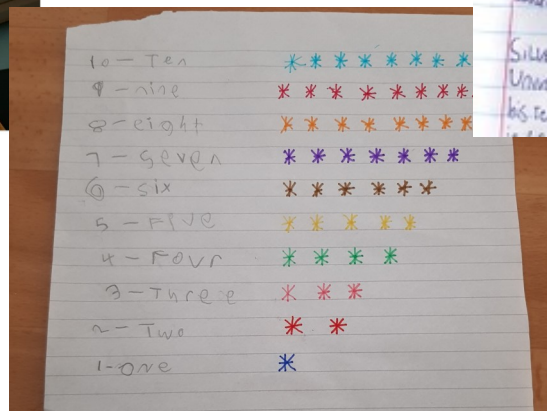 10 - Ten
9 - nine
8 - eight
7 - Seven
6 - Six
5 - Five
4 - Four
3 - Three
2 - Two
1 - one